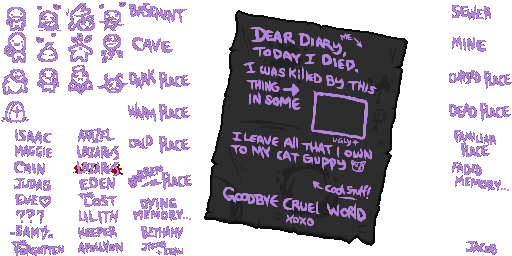 BASEMENT
CAVE
DARK PLACE
WARM PLACE
COLD PLACE
BROKEN PLACE
DYING
MEMORY...
BETHANY
JACOB
+ ESAU
ISAAC
MAGGIE
CAIN
JUDAS
EVE♡
???
-SAMY-
THE
FORGOTTEN
AZAZEL
LAZARUS
LAZARUS
EDEN
THE
LOST
LILITH
KEEPER
APOLLYON
DEAR DIARY,
ME
TODAY I DIED.
I WAS KILLED BY THIS
THING →
IN SOME
UGLY↑
I LEAVE ALL THAT I OWN
TO MY CAT GUPPY
↖COOL STUFF!
GOODBYE CRUEL WORLD
XOXO
SEWER
MINE
CURSED PLACE
DEAD PLACE
FAMILIAR
PLACE
FADED
MEMORY...
JACOB